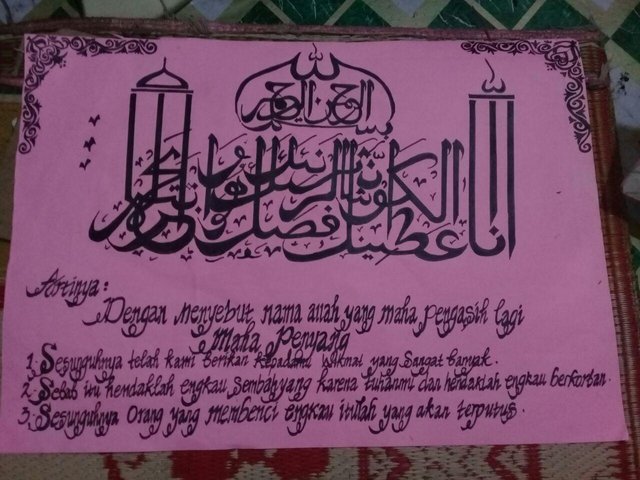 بسم الله الرحمن الرحيم
انا عطينك الكوثر فصل لربك وانحر
Artinya:
Dengan Menyebut nama allah yang maha Pengasih lagi
Maha Penyang
1. Sesunguhnya telah kami berikan kepadamu nikmat yang sangat banyak.
2. Sebab itu hendaklah engkau Sembahyang karena tuhanmu dan hendaklah engkau berkorban.
3. Sesunguhnya orang yang membenci engkau itulah yang akan terputus.